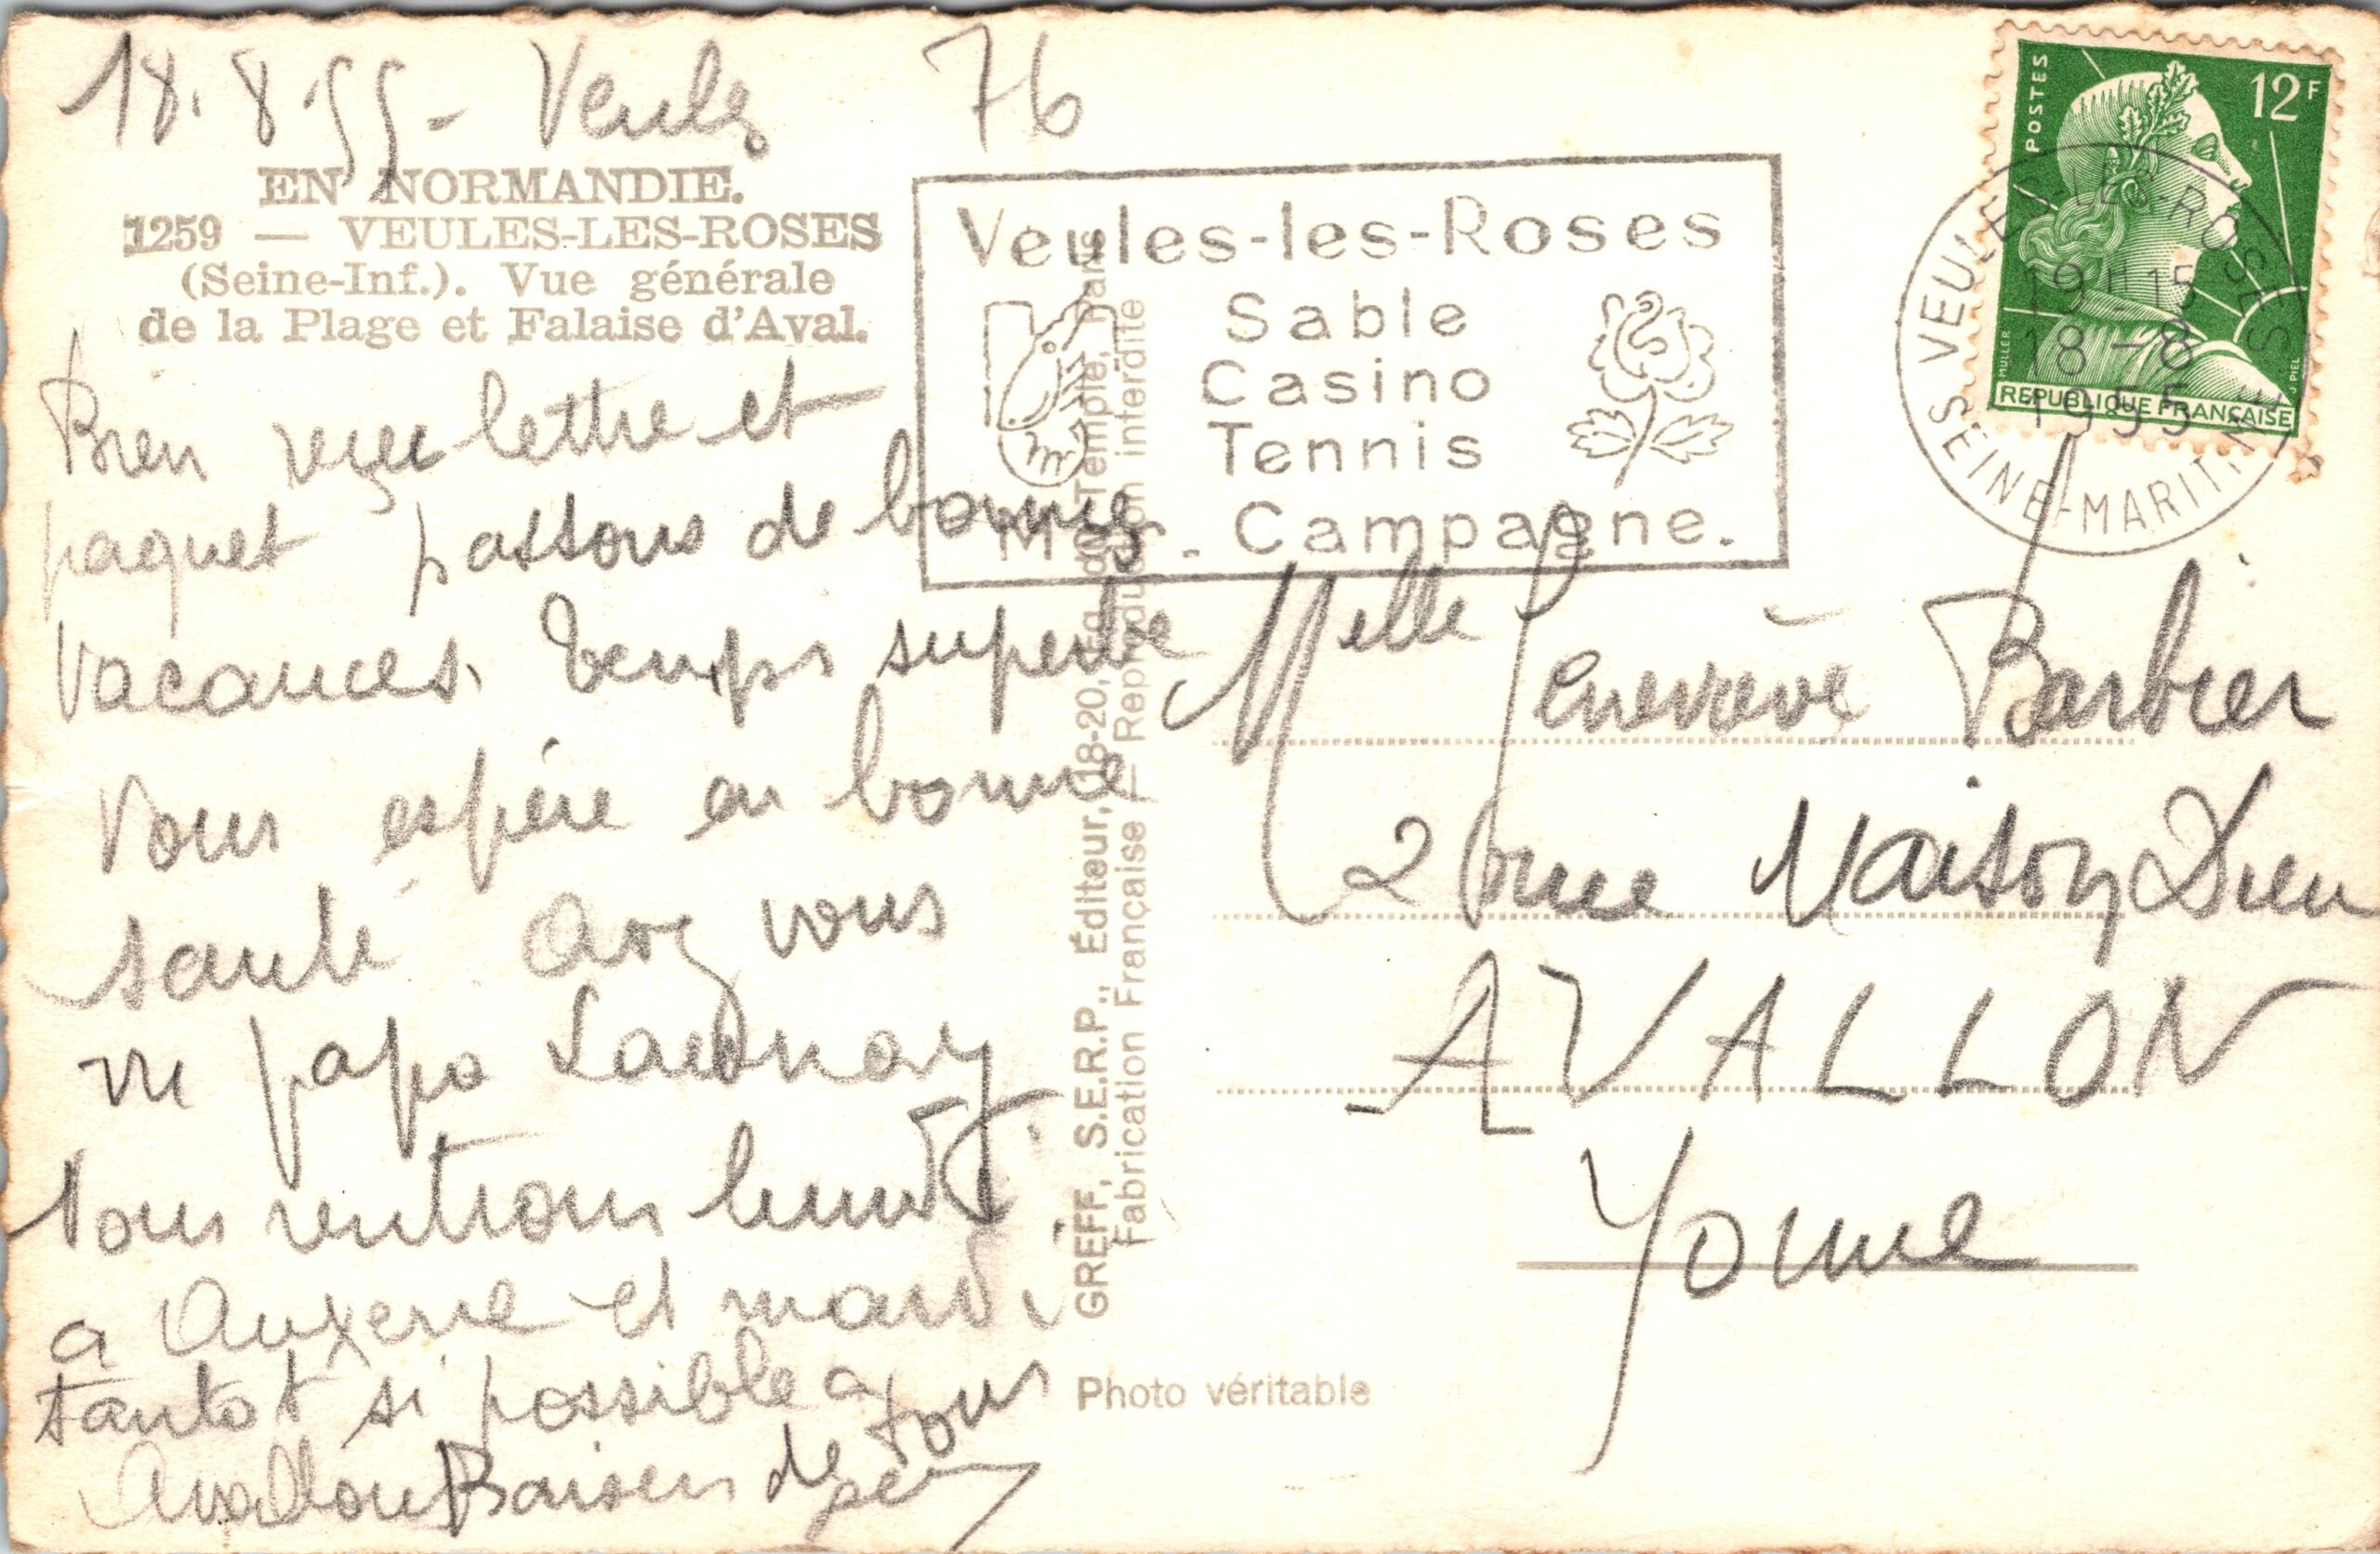 18.8.55 - Veules
76
EN NORMANDIE.
1259 — VEULES-LES-ROSES
(Seine-Inf.). Vue générale
de la Plage et Falaise d'Aval.
Bien reçu lettre et
paquet passons de bonnes
vacances, temps superbe
Vous espère en bonne
santé
vous
vu papa Launay
Nous rentrons lundi
a Auxerre et mardi
tantot si possible a
Avallon Baisers de tous
Veules-les-Roses
Sable
Casino
Tennis
Mer - Campagne.
POSTES
12F
MULLER
J. PIEL
REPUBLIQUE FRANÇAISE
VEULES-LES-ROSES
19H15
18-8
1955
SEINE-MARITIME
GREFF, S.E.R.P., Éditeur, 18-20, Fg du Temple, Paris
Fabrication Française — Reproduction interdite
Melle Geneviève Barbier
2 rue Maison Dieu
AVALLON
Yonne
Photo véritable